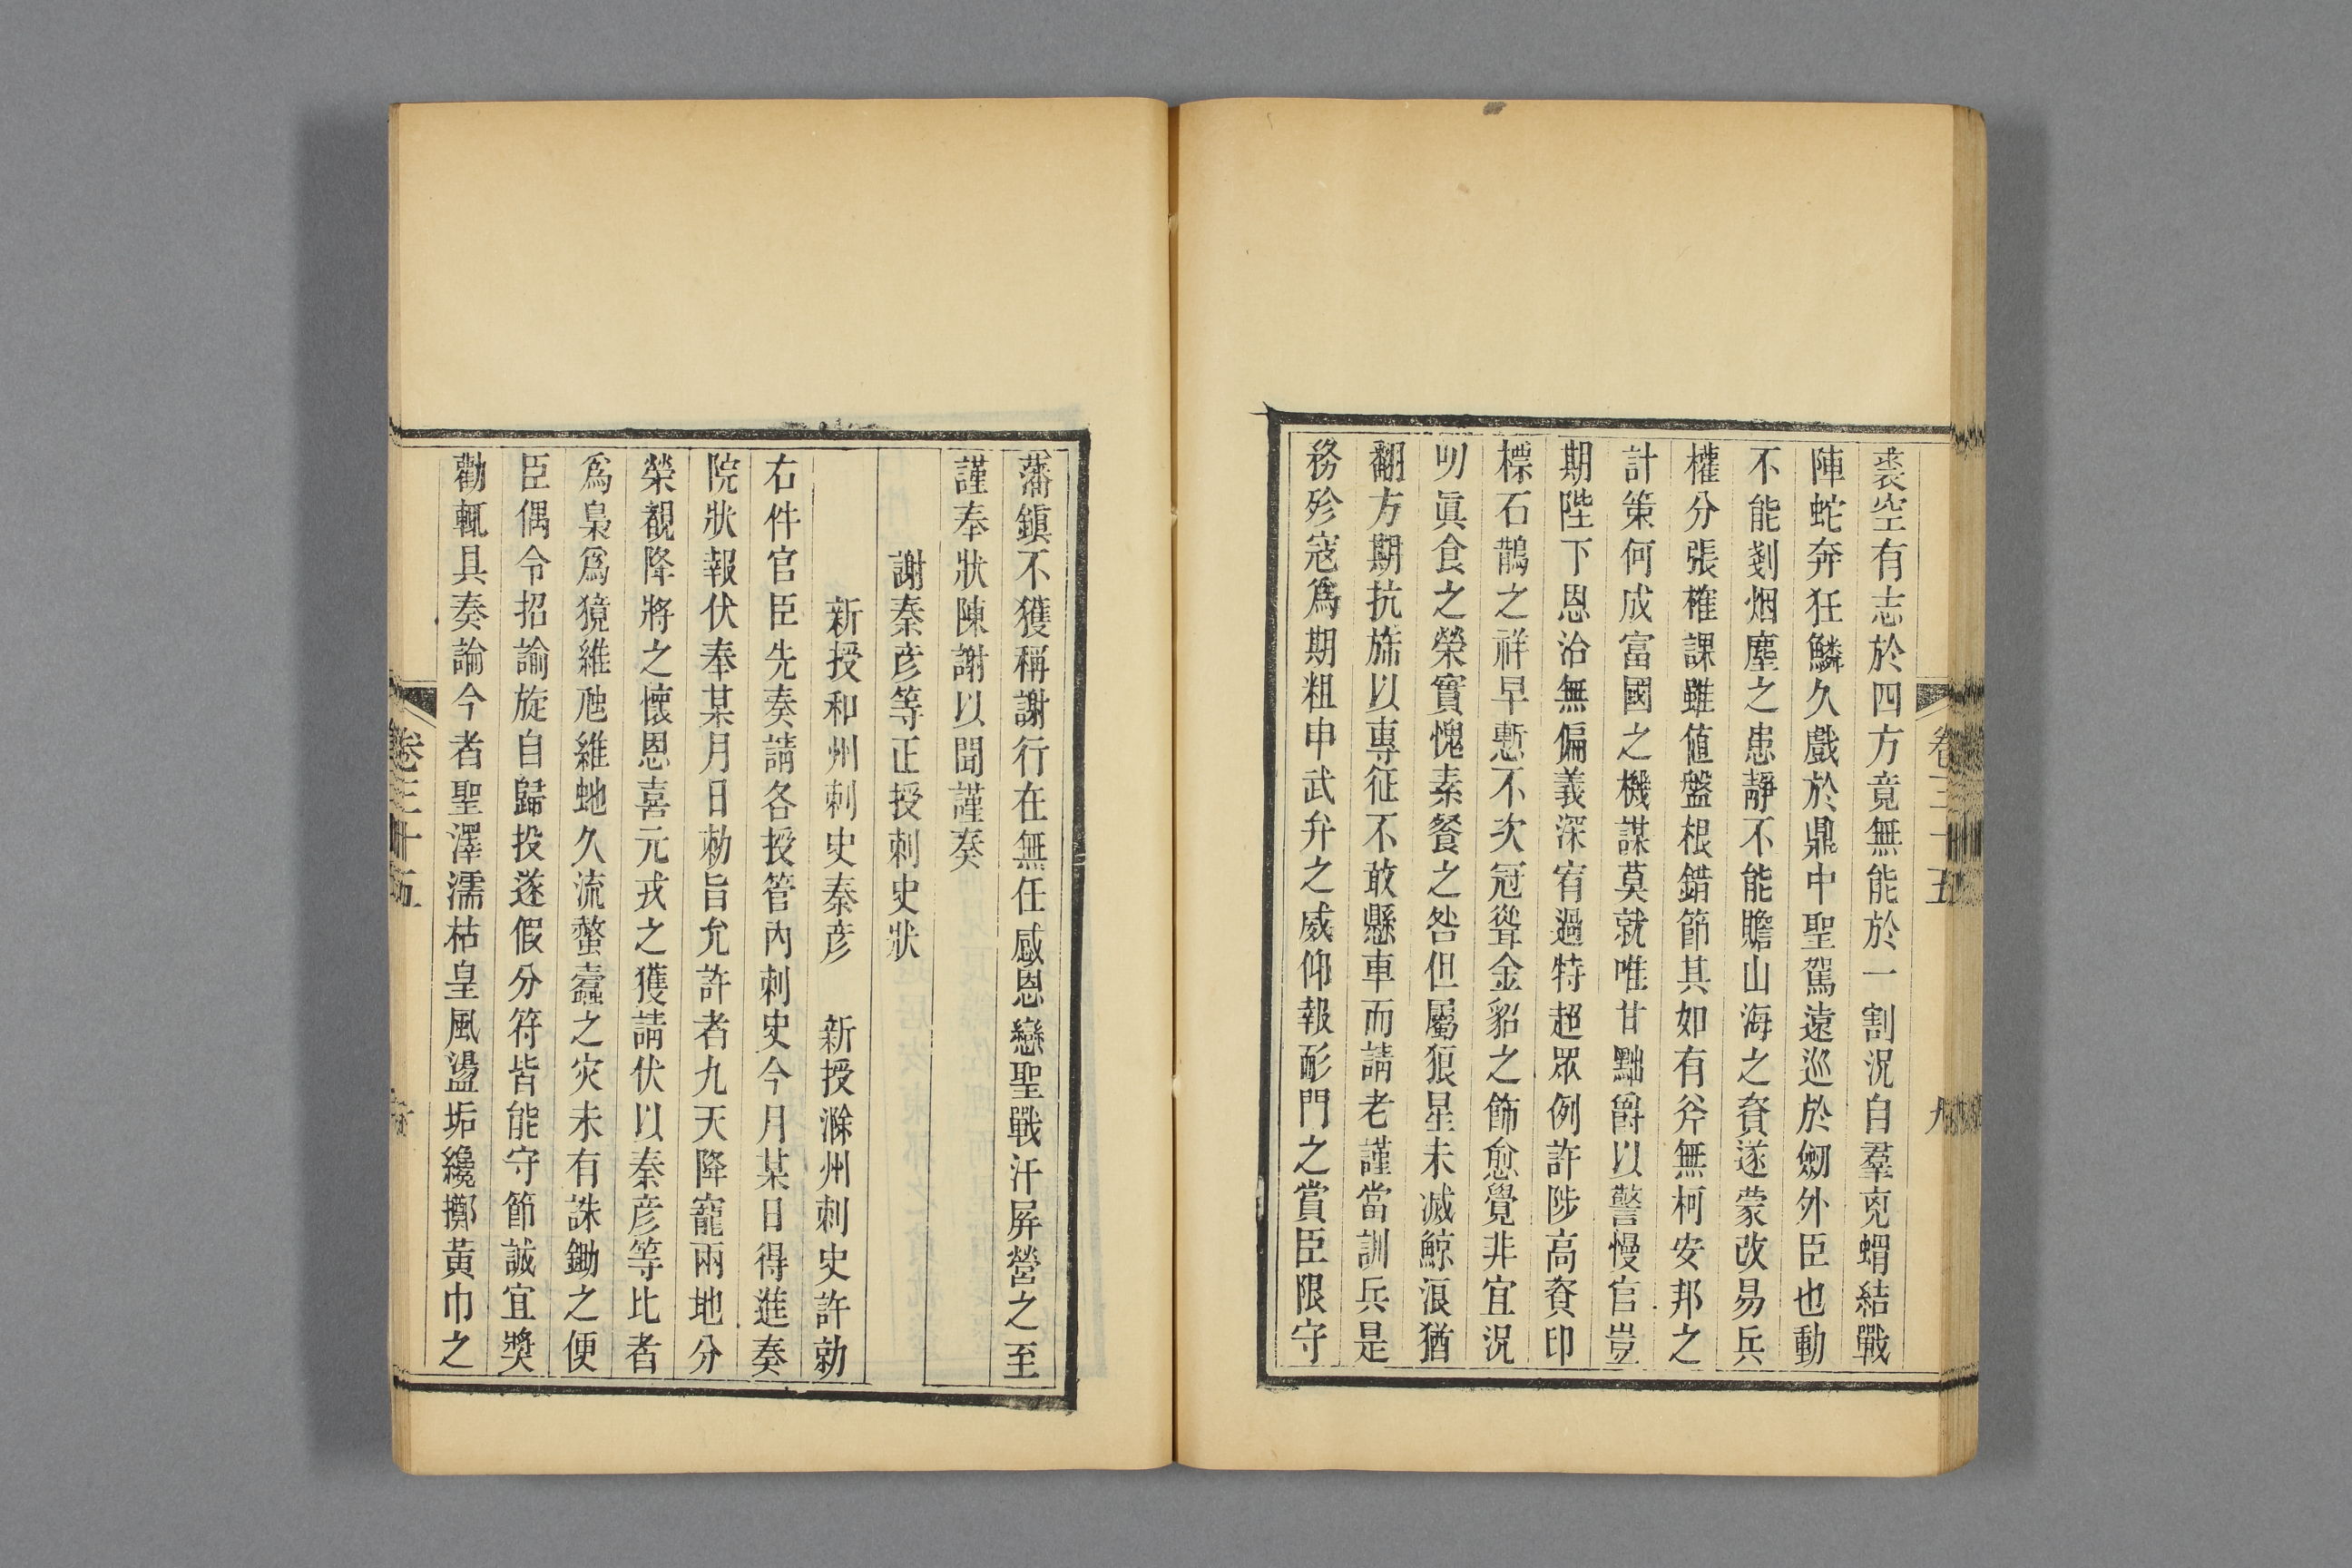 裘空有志於四方竟無能於一割況自羣兇蝟結戰
陣蛇奔狂鱗久戲於鼎中聖駕遠巡於劒外臣也動
不能剗烟塵之患靜不能贍山海之賚遂蒙改易兵
權分張榷課雖値盤根錯節其如有斧無柯安邦之
計策何成富國之機謀莫就唯甘黜爵以警慢官豈
期陛下恩洽無偏義深宥過特超眾例許陟高資印
標石鵲之祥早慙不次冠聳金貂之飾愈覺非宜況
叨眞食之榮實愧素餐之咎但屬狼星未滅鯨浪猶
翻方期抗旆以專征不敢懸車而請老謹當訓兵是
務殄寇爲期粗申武弁之威仰報彤門之賞臣限守
卷三十五
九
藩鎭不獲稱謝行在無任感恩戀聖戰汗屏營之至
謹奉狀陳謝以聞謹奏
謝秦彦等正授刺史狀
新授和州刺史秦彦　新授滁州刺史許勍
右件官臣先奏請各授管內刺史今月某日得進奏
院狀報伏奉某月日勑旨允許者九天降寵兩地分
榮覩降將之懷恩喜元戎之獲請伏以秦彦等比者
爲梟爲獍維虺維虵久流螫蠹之灾未有誅鋤之便
臣偶令招諭旋自歸投遂假分符皆能守節誠宜奬
勸輒具奏論今者聖澤濡枯皇風盪垢纔擲黃巾之
卷三十五